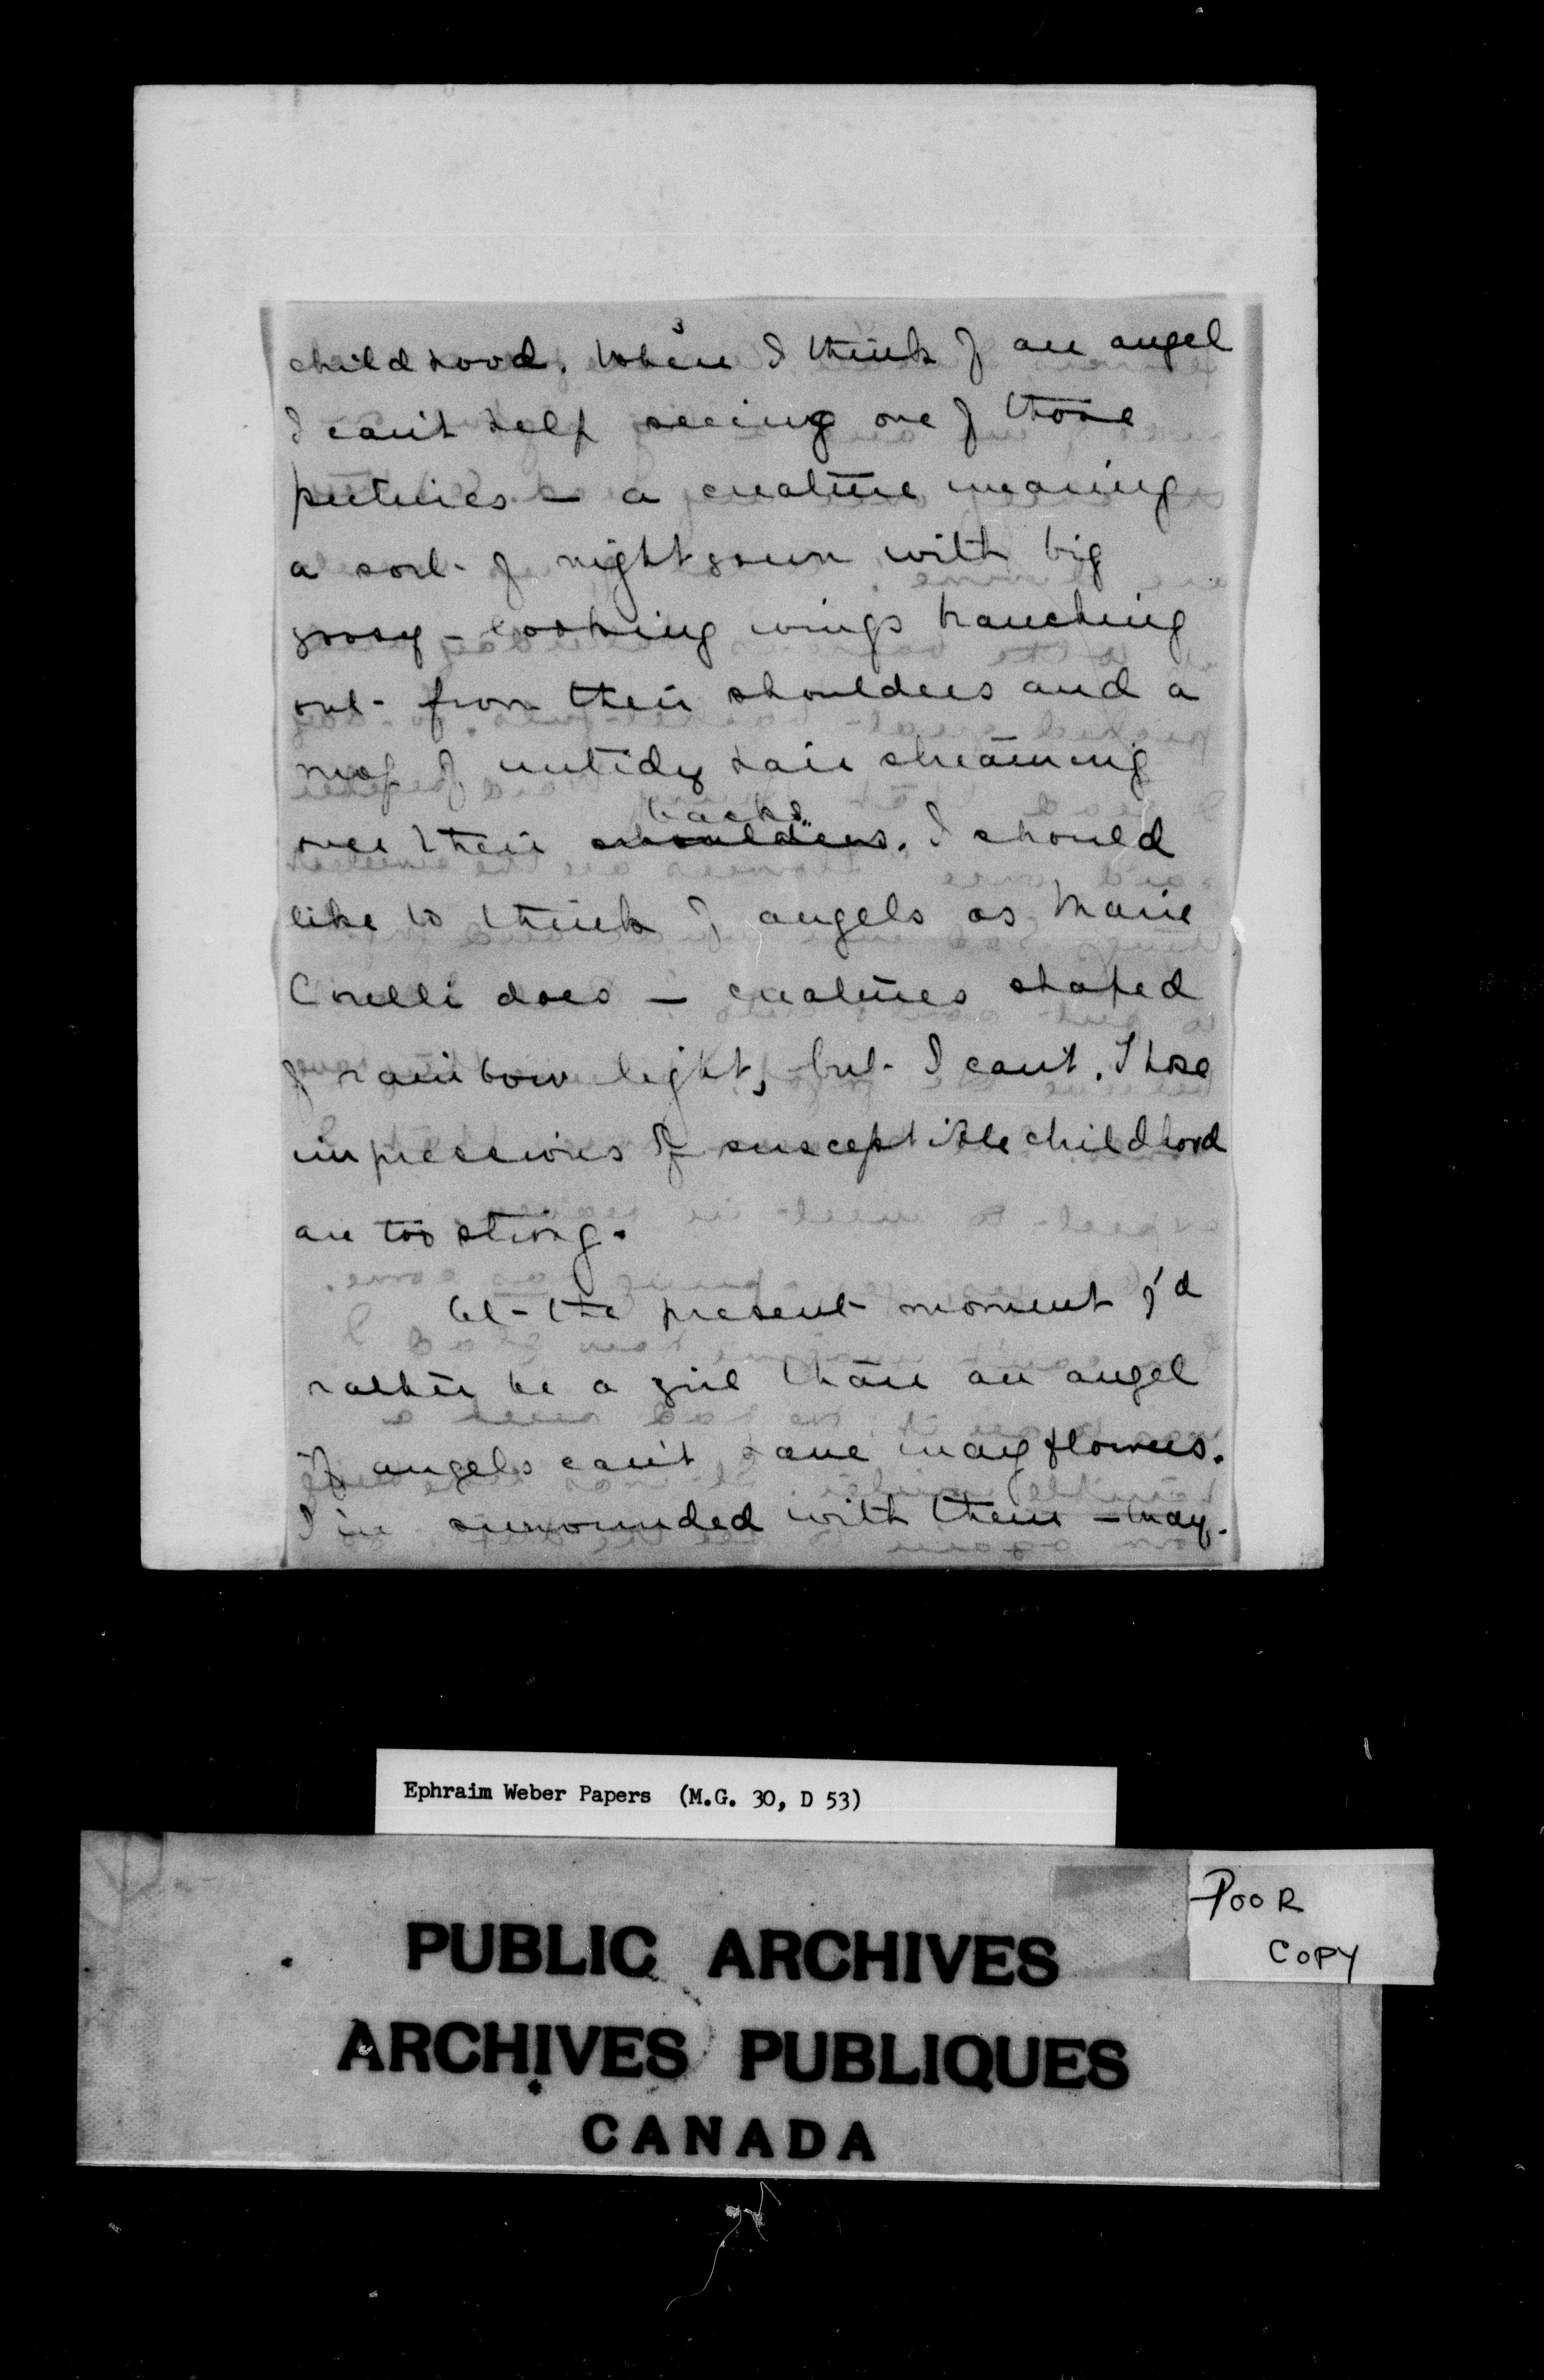 3
childhood. When I think of an angel
I can't help seeing one of those
pictures – a creature wearing
a sort of nightgown with big
goosy-looking wings branching
out from their shoulders and a
mop of untidy hair streaming
backs.
over their shoulders. I should
like to think of angels as Marie
Corelli does – creatures shaped
of rainbow light, but I can't. Those
impressions of susceptible childhood
are too strong.
At the present moment I'd
rather be a girl than an angel
if angels can't have mayflowers.
I'm surrounded with them – may-
Ephraim Weber Papers (M.G. 30, D 53)
POOR
COPY
PUBLIC ARCHIVES
ARCHIVES PUBLIQUES
CANADA